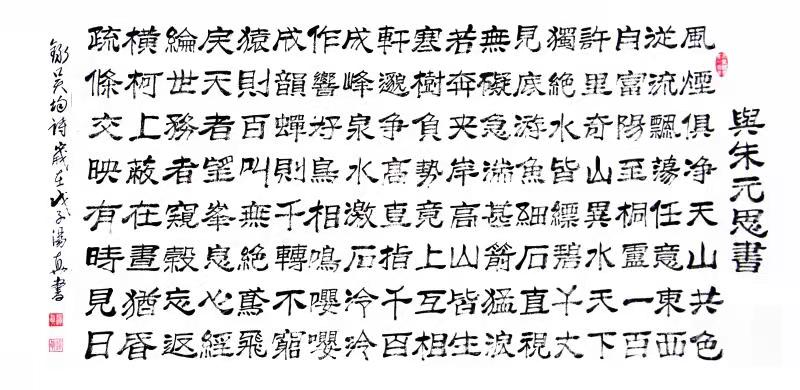 與朱元思書
風煙俱净天山共色
從流飄蕩任意東西
自富陽至桐靈一百
許里奇山異水天下
獨絕水皆縹碧千丈
見底游魚細石直視
無礙急湍甚箭猛浪
若奔夹岸高山皆生
寒樹負勢竟上互相
軒邈争高直指千百
成峰泉水激石冷冷
作響好鳥相鳴嚶嚶
成韻蟬則千轉不窮
猿則百叫無絕鳶飛
戾天者望峯息心經
綸世務者窺榖忘返
橫柯上蔽在晝猶昏
疏條交映有時見日
錄吴均詩歲在戊子湯書